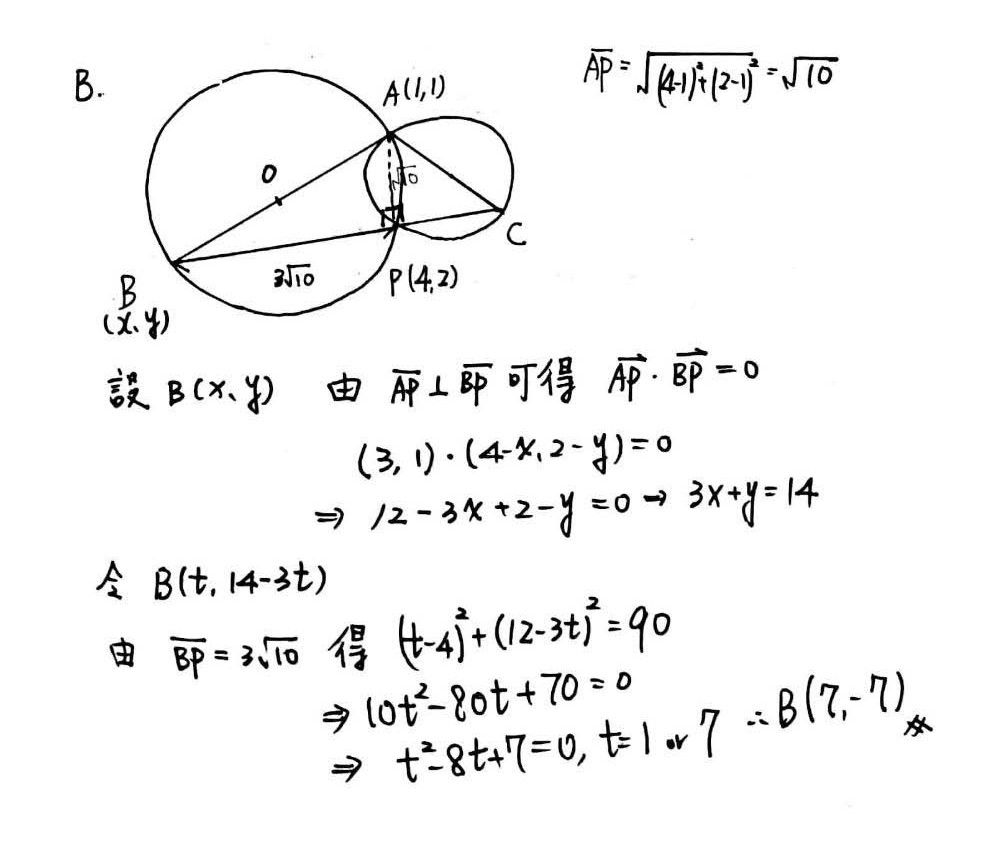 B.
A(1,1)
AP̅ = √((4-1)²+(2-1)²) = √10
O
√10
C
3√10
P(4,2)
B
(x、y)
設 B(x、y) 由 AP̅ ⊥ BP̅ 可得 AP⃗ · BP⃗ = 0
(3, 1)·(4-x, 2-y) = 0
⇒ 12-3x+2-y = 0 → 3x+y = 14
令 B(t, 14-3t)
由 BP̅ = 3√10 得 (t-4)²+(12-3t)² = 90
⇒ 10t²-80t+70 = 0
⇒ t²-8t+7=0, t=1 or 7 ∴ B(7,-7)#